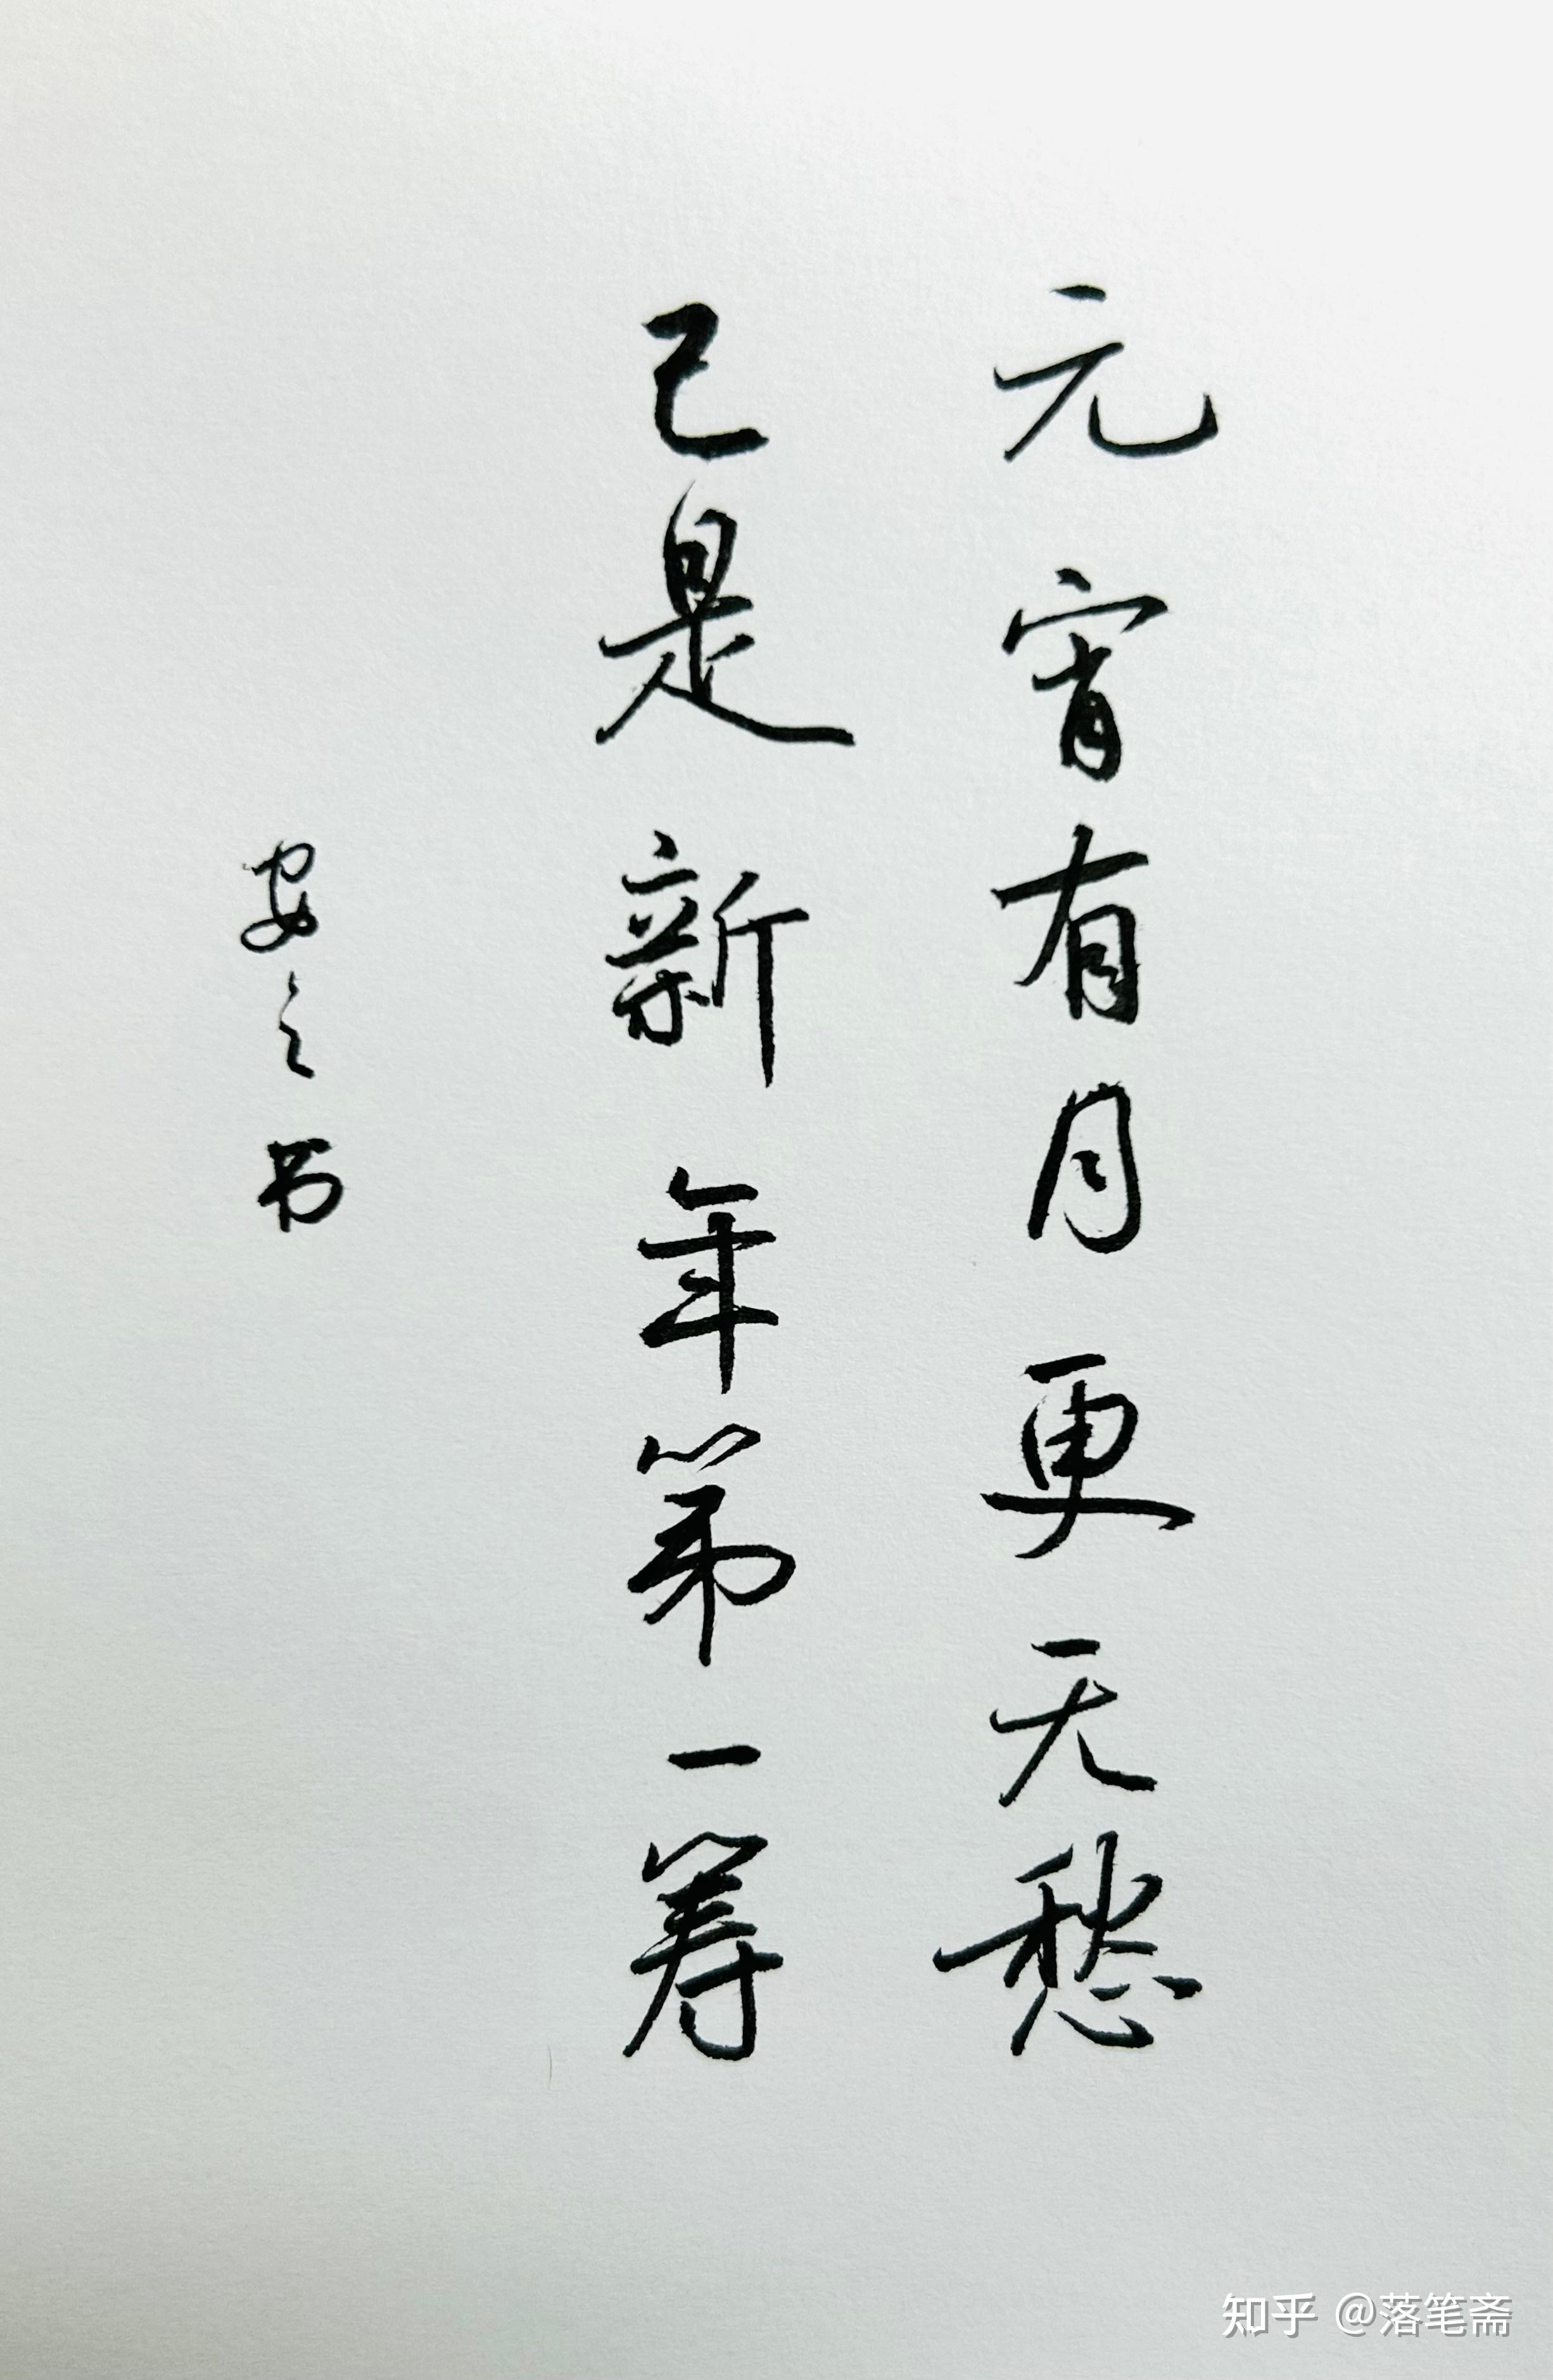 元宵有月更无愁
已是新年第一筹
安之书
知乎 @落笔斋